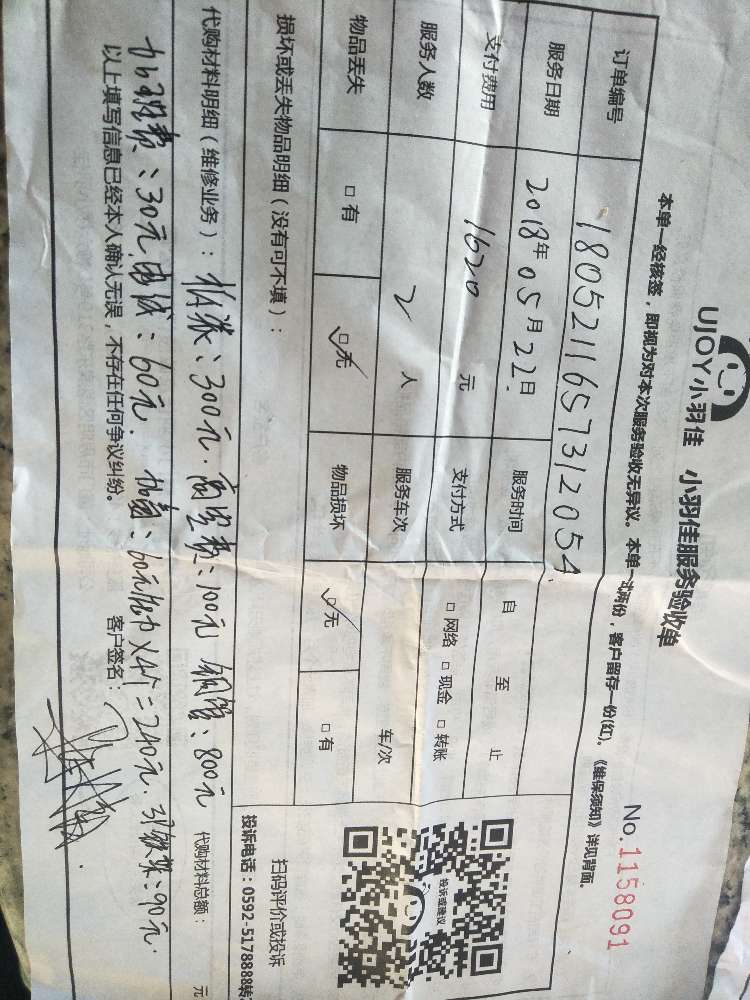 UJOY小羽佳 小羽佳服务验收单
No.1158091
本单一经核签,即视为对本次服务验收无异议。本单一式两份,客户留存一份(红)。《维保须知》详见背面。
订单编号 1805211657312054
服务日期 2018年05月22日 服务时间 自 至 止
支付费用 1620 元 支付方式 □网络 □现金 □转账
服务人数 2 人 服务车次 车/次
物品丢失 □有 ☑无 物品损坏 ☑无 □有
损坏或丢失物品明细(没有可不填):
代购材料明细(维修业务): 拆装:300元. 高空费:100元 铜管:800元 代购材料总额: 元
加班费:30元 电线:60元. 加氟:60元 X4个=240元. 铁架:90元.
以上填写信息已经本人确认无误,不存在任何争议纠纷。 客户签名:
投诉或建议
扫码评价或投诉
投诉电话:0592-5178888转